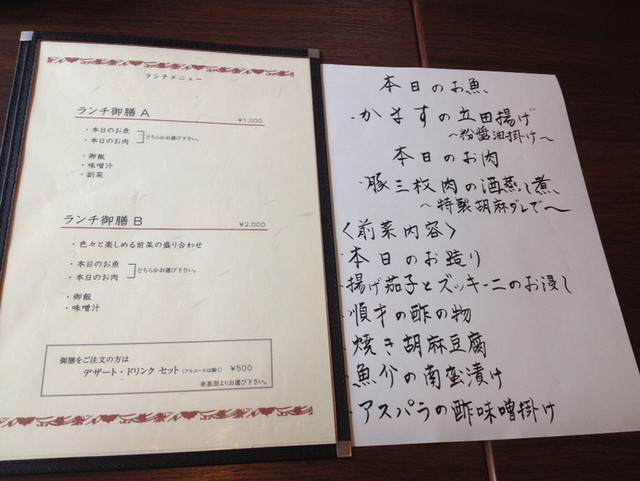 ランチメニュー
ランチ御膳 A
¥1,000
・本日のお魚
・本日のお肉
どちらかお選び下さい。
・御飯
・味噌汁
・副菜
ランチ御膳 B
¥2,000
・色々と楽しめる前菜の盛り合わせ
・本日のお魚
・本日のお肉
どちらかお選び下さい。
・御飯
・味噌汁
御膳をご注文の方は
デザート・ドリンク セット (アルコールは除く) ¥500
※裏面よりお選び下さい。
本日のお魚
・かますの立田揚げ
〜粉醤油掛け〜
本日のお肉
・豚三枚肉の酒蒸し煮
〜特製胡麻ダレで〜
〈前菜内容〉
・本日のお造り
・揚げ茄子とズッキーニのお浸し
・順才の酢の物
・焼き胡麻豆腐
・魚介の南蛮漬け
・アスパラの酢味噌掛け